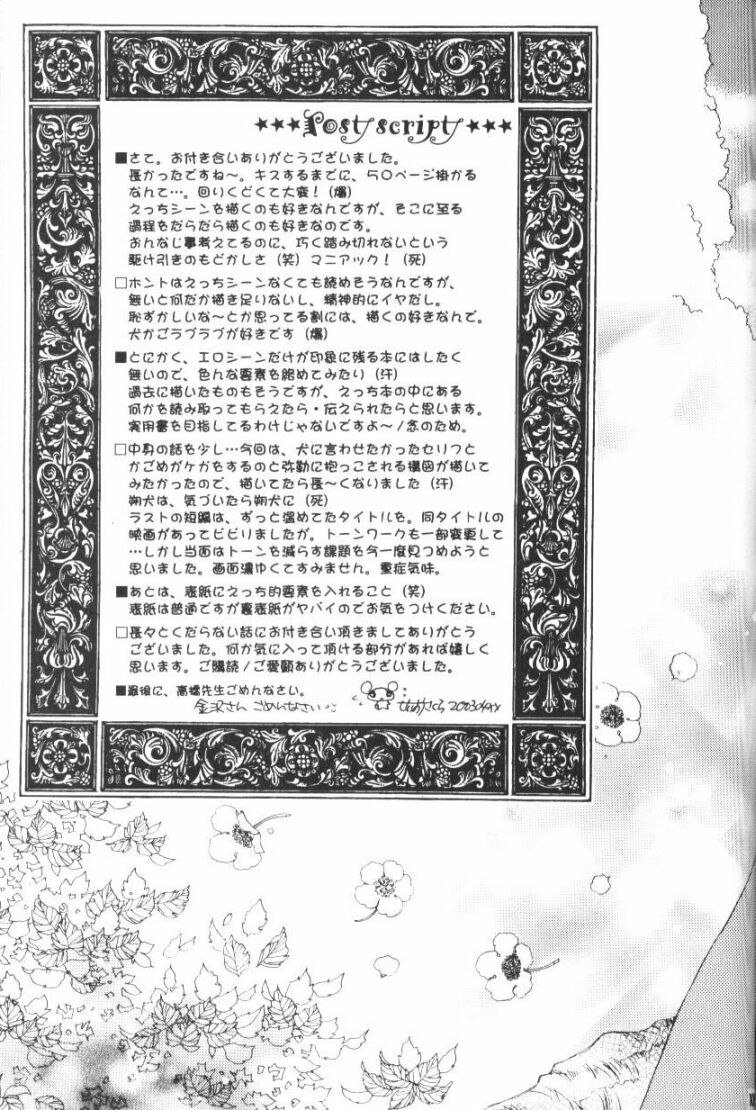 ★★★Post script★★★
■さて。お付き合いありがとうございました。
長かったですね～。キスするまでに、50ページ掛かる
なんて…。回りくどくて大変！（爆）
えっちシーンを描くのも好きなんですが、そこに至る
過程をだらだら描くのも好きなのです。
おんなじ事考えてるのに、巧く踏み切れないという
駆け引きのもどかしさ（笑）マニアック！（死）
□ホントはえっちシーンなくても読めそうなんですが、
無いと何だか描き足りないし、精神的にイヤだし。
恥ずかしいな～とか思ってる割には、描くの好きなんで。
犬かごラブラブが好きです（爆）
■とにかく、エロシーンだけが印象に残る本にはしたく
無いので、色んな要素を絡めてみたり（汗）
過去に描いたものもそうですが、えっち本の中にある
何かを読み取ってもらえたら・伝えられたらと思います。
実用書を目指してるわけじゃないですよ～/念のため。
□中身の話を少し…今回は、犬に言わせたかったセリフと
かごめがケガをするのと弥勒に抱っこされる構図が描いて
みたかったので、描いてたら長～くなりました（汗）
朔犬は、気づいたら朔犬に（死）
ラストの短編は、ずっと温めてたタイトルを。同タイトルの
映画があってビビりましたが。トーンワークも一部変更して
…しかし当面はトーンを減らす課題を今一度見つめようと
思いました。画面濃ゆくてすみません。重症気味。
■あとは、表紙にえっち的要素を入れること（笑）
表紙は普通ですが裏表紙がヤバイのでお気をつけください。
□長々とくだらない話にお付き合い頂きましてありがとう
ございました。何か気に入って頂ける部分があれば嬉しく
思います。ご購読/ご愛顧ありがとうございました。
■最後に、高橋先生ごめんなさい。
金沢さんごめんなさい
2003